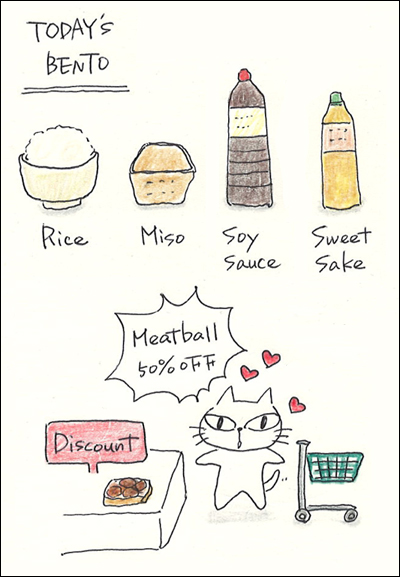 TODAY'S
BENTO
Rice
Miso
Soy
Sauce
Sweet
Sake
Meatball
50% OFF
Discount